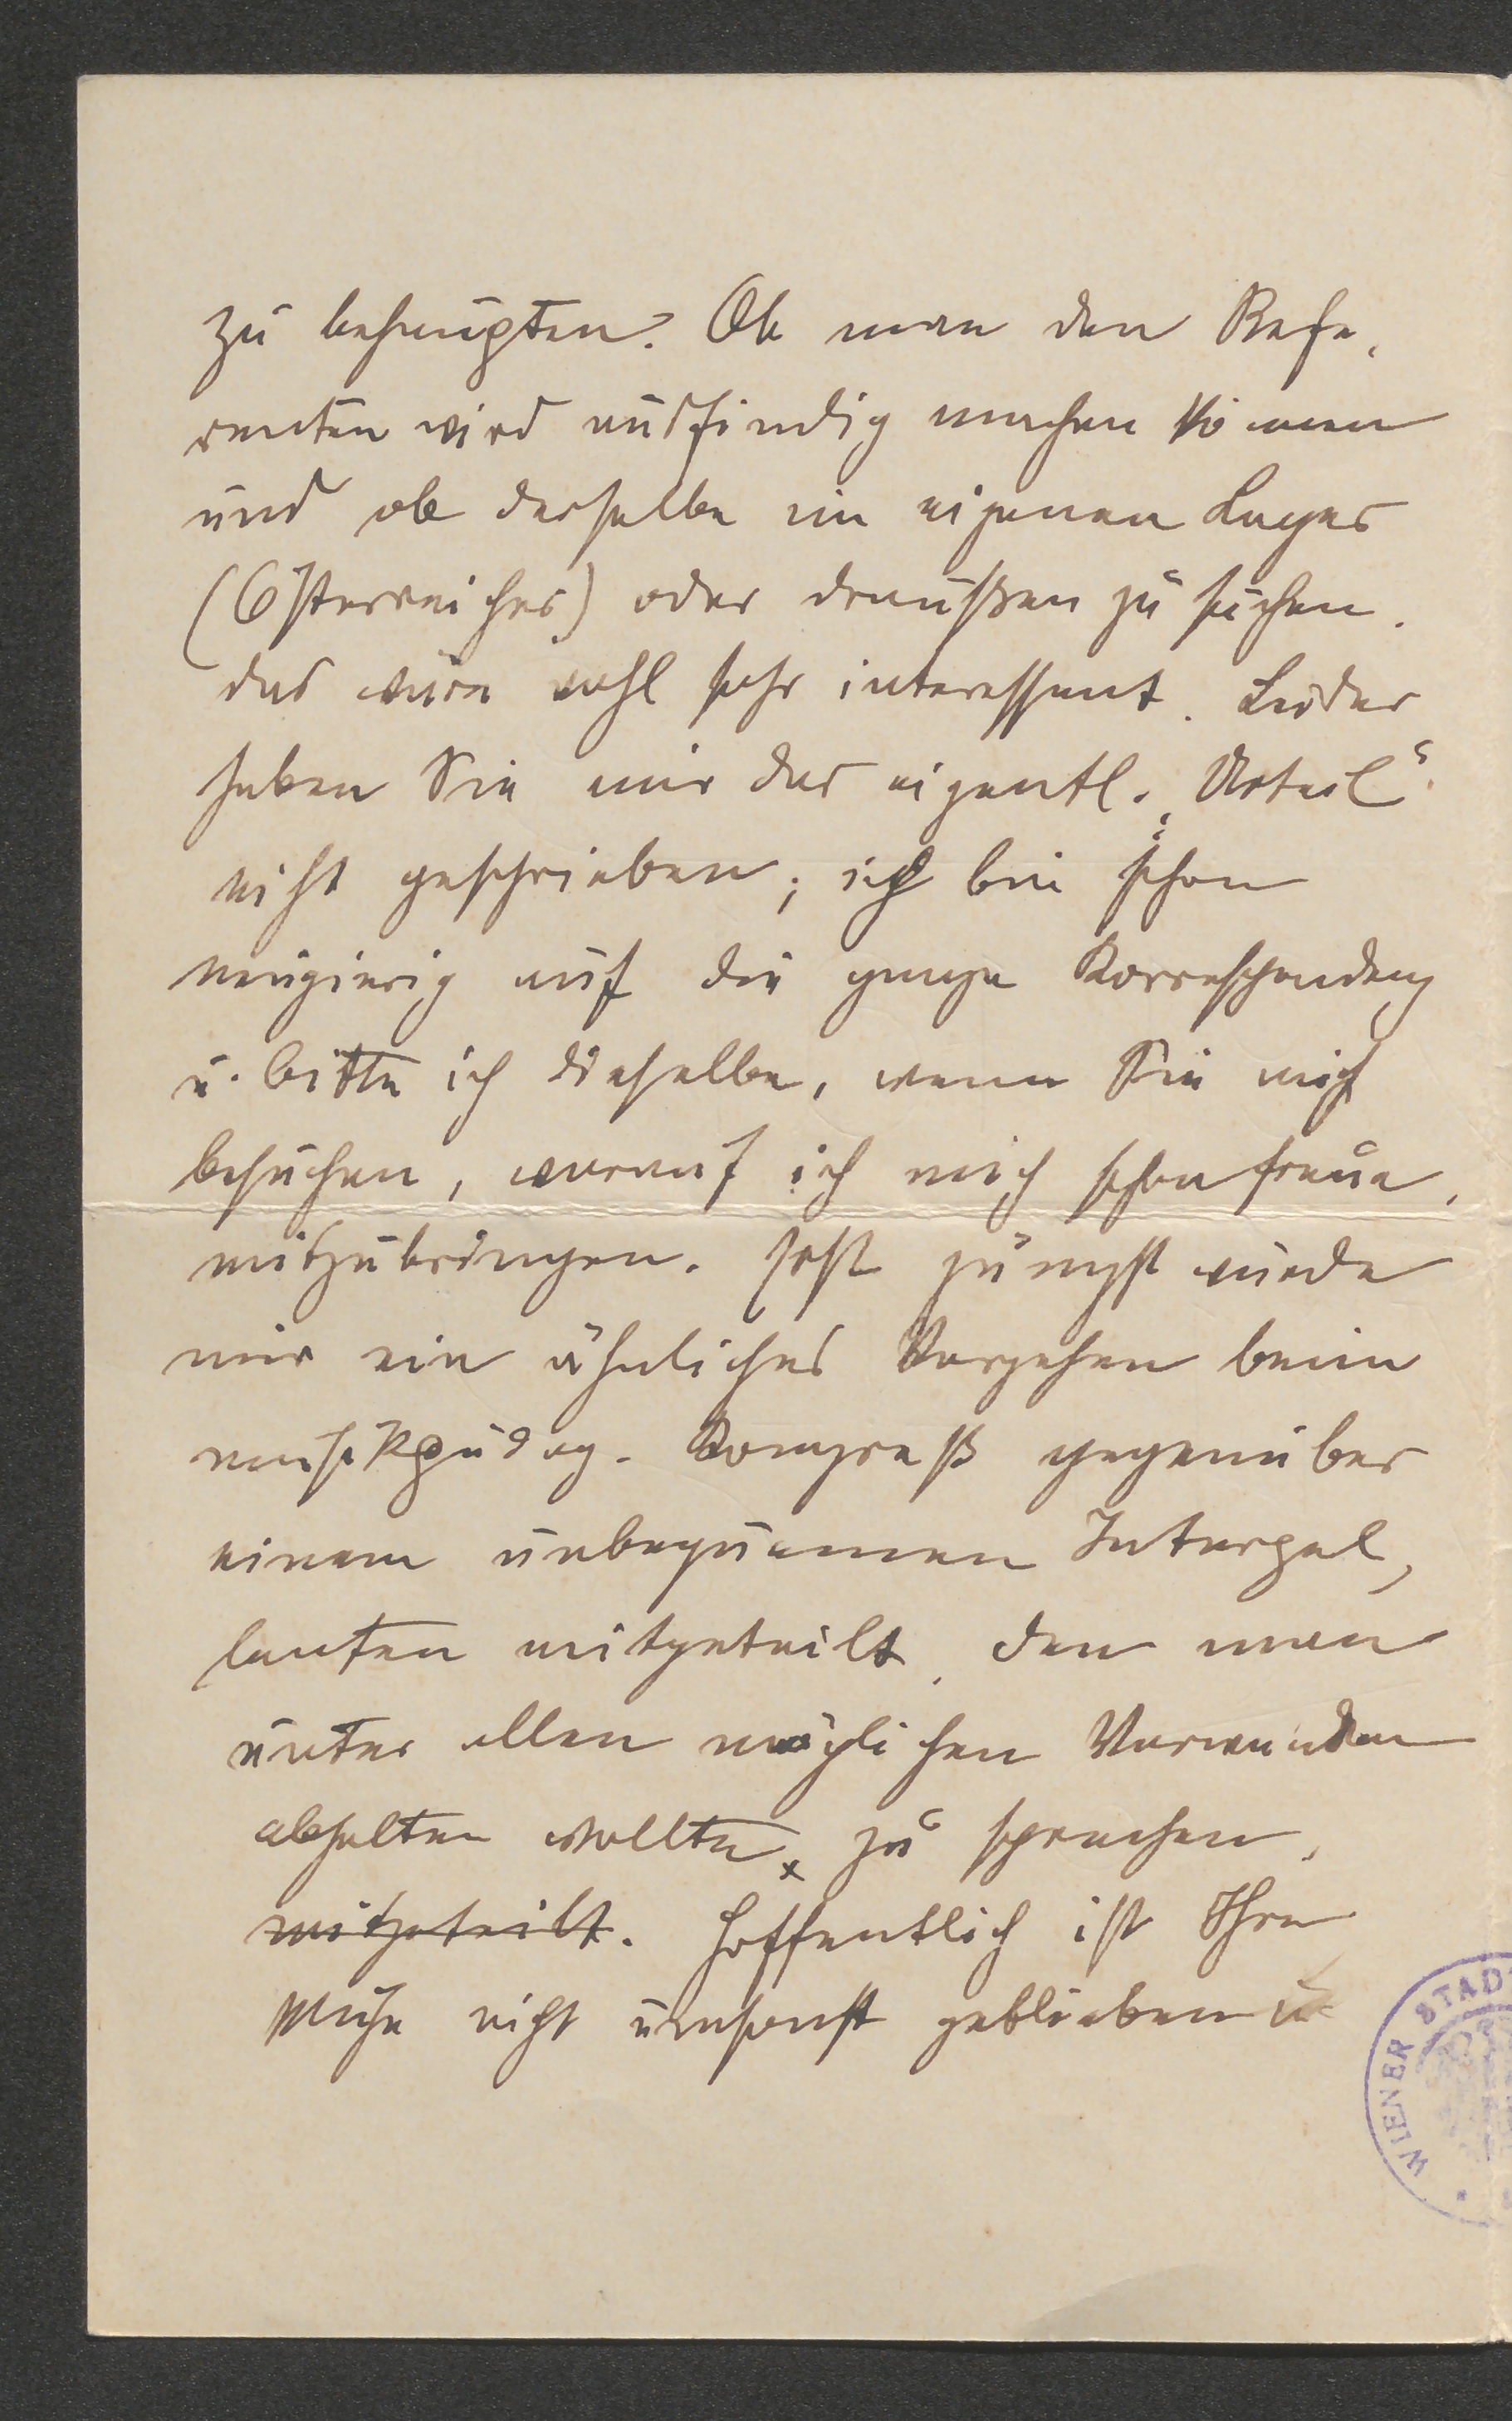 zu behaupten. Ob man den Refe-
renten wird ausfindig machen können
und ob derselbe im eigenen Lager
(Österreicher) oder draußen zu suchen,
das wäre wohl sehr interessant. Leider
haben Sie mir das eigentl. „Urteil“
nicht geschrieben; ich bin schon
neugierig auf die ganze Korrespondenz
u. bitte ich dieselbe, wenn Sie mich
besuchen, worauf ich mich schon freue,
mitzubringen. Erst jüngst wurde
mir ein ähnliches Vorgehen beim
musikpädag. Kongreß gegenüber
einem unbequemen Interpel-
lanten mitgeteilt, den man
unter allen möglichen Vorwänden
abhalten wollte, zu sprechen,
mitgeteilt. Hoffentlich ist Ihre
Mühe nicht umsonst geblieben u
WIENER STAD